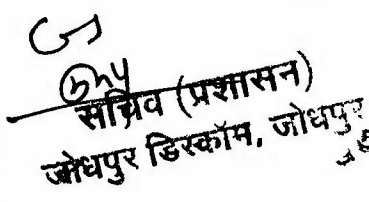 सचिव (प्रशासन)
जोधपुर डिस्कॉम, जोधपुर